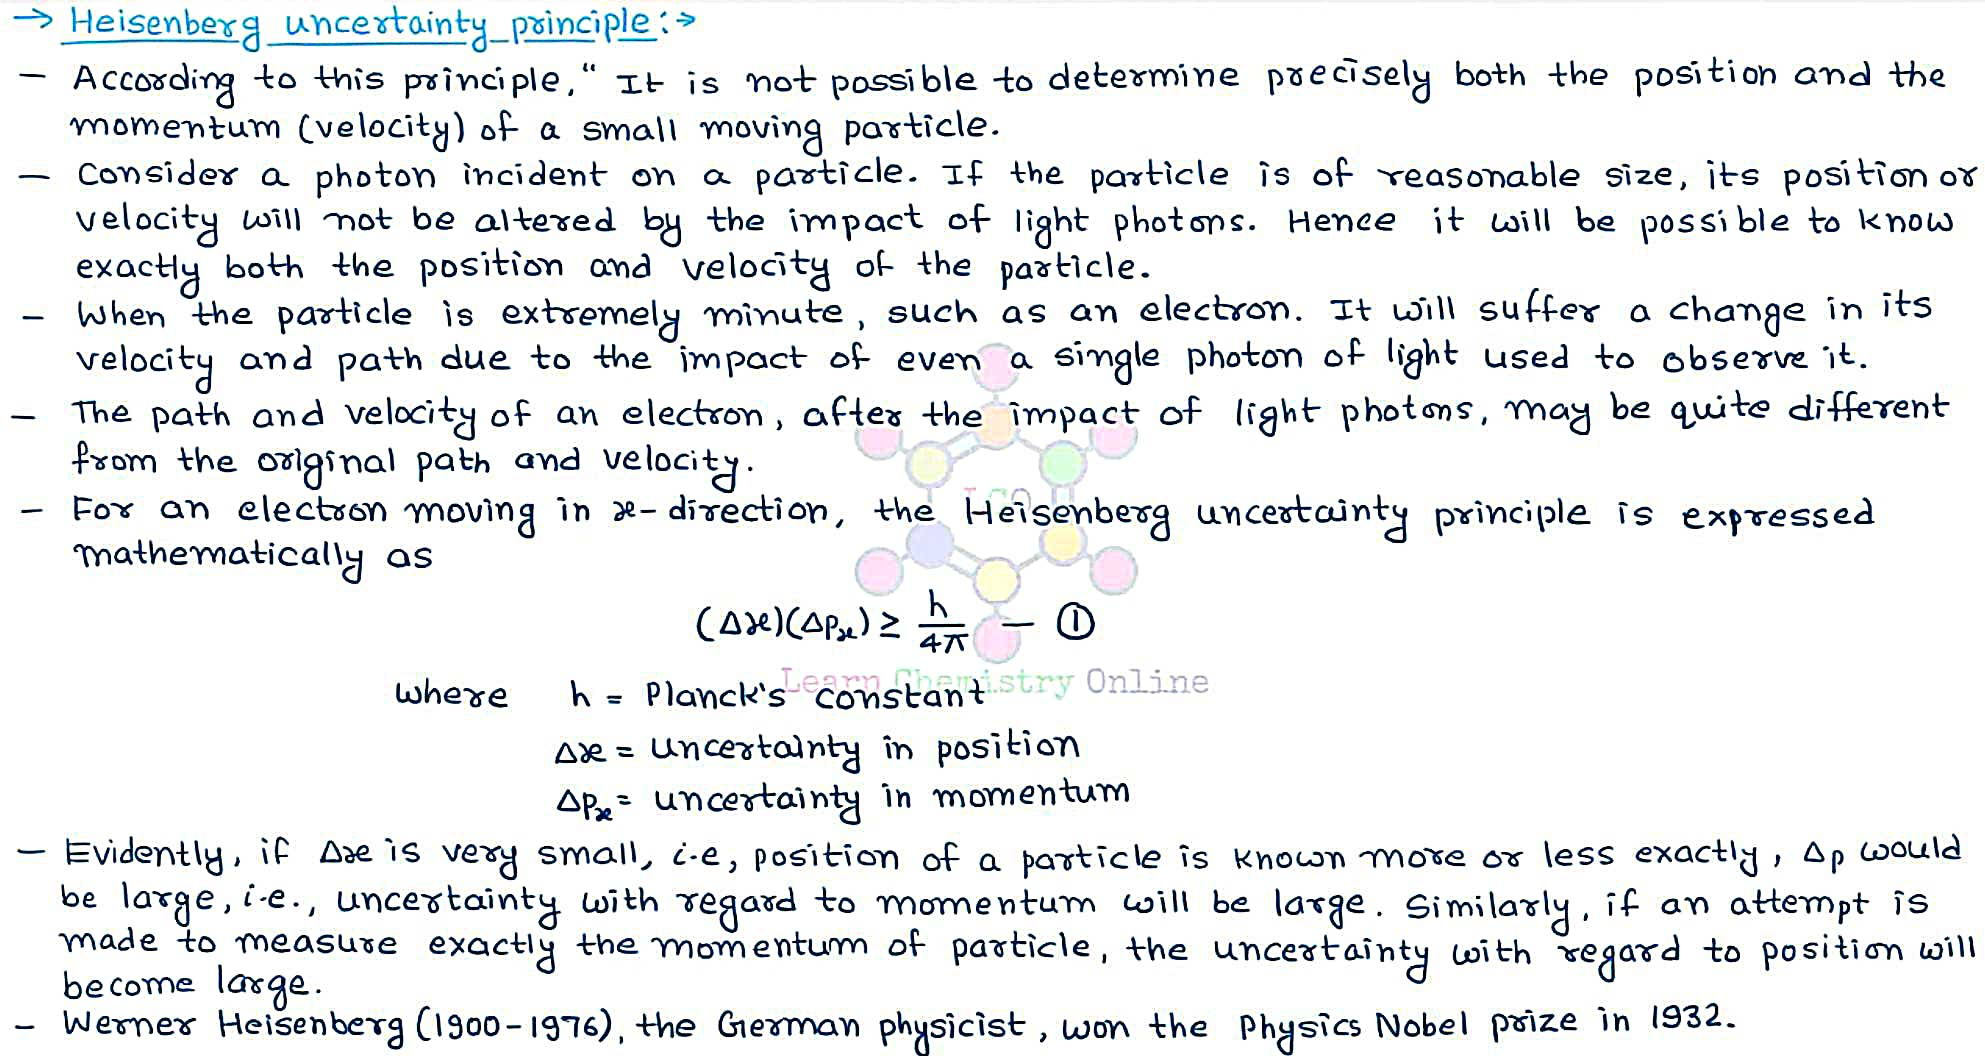 → Heisenberg uncertainty principle:→
– According to this principle, “ It is not possible to determine precisely both the position and the
momentum (velocity) of a small moving particle.
– Consider a photon incident on a particle. If the particle is of reasonable size, its position or
velocity will not be altered by the impact of light photons. Hence it will be possible to know
exactly both the position and velocity of the particle.
– When the particle is extremely minute, such as an electron. It will suffer a change in its
velocity and path due to the impact of even a single photon of light used to observe it.
– The path and velocity of an electron, after the impact of light photons, may be quite different
from the original path and velocity.
– For an electron moving in x-direction, the Heisenberg uncertainty principle is expressed
LCO
mathematically as
(Δx)(Δpₓ) ≥ h/4π – ①
Learn Chemistry Online
where h = Planck's constant
Δx = uncertainty in position
Δpₓ = uncertainty in momentum
– Evidently, if Δx is very small, i.e, position of a particle is known more or less exactly, Δp would
be large, i.e., uncertainty with regard to momentum will be large. Similarly, if an attempt is
made to measure exactly the momentum of particle, the uncertainty with regard to position will
become large.
– Werner Heisenberg (1900-1976), the German physicist, won the Physics Nobel prize in 1932.